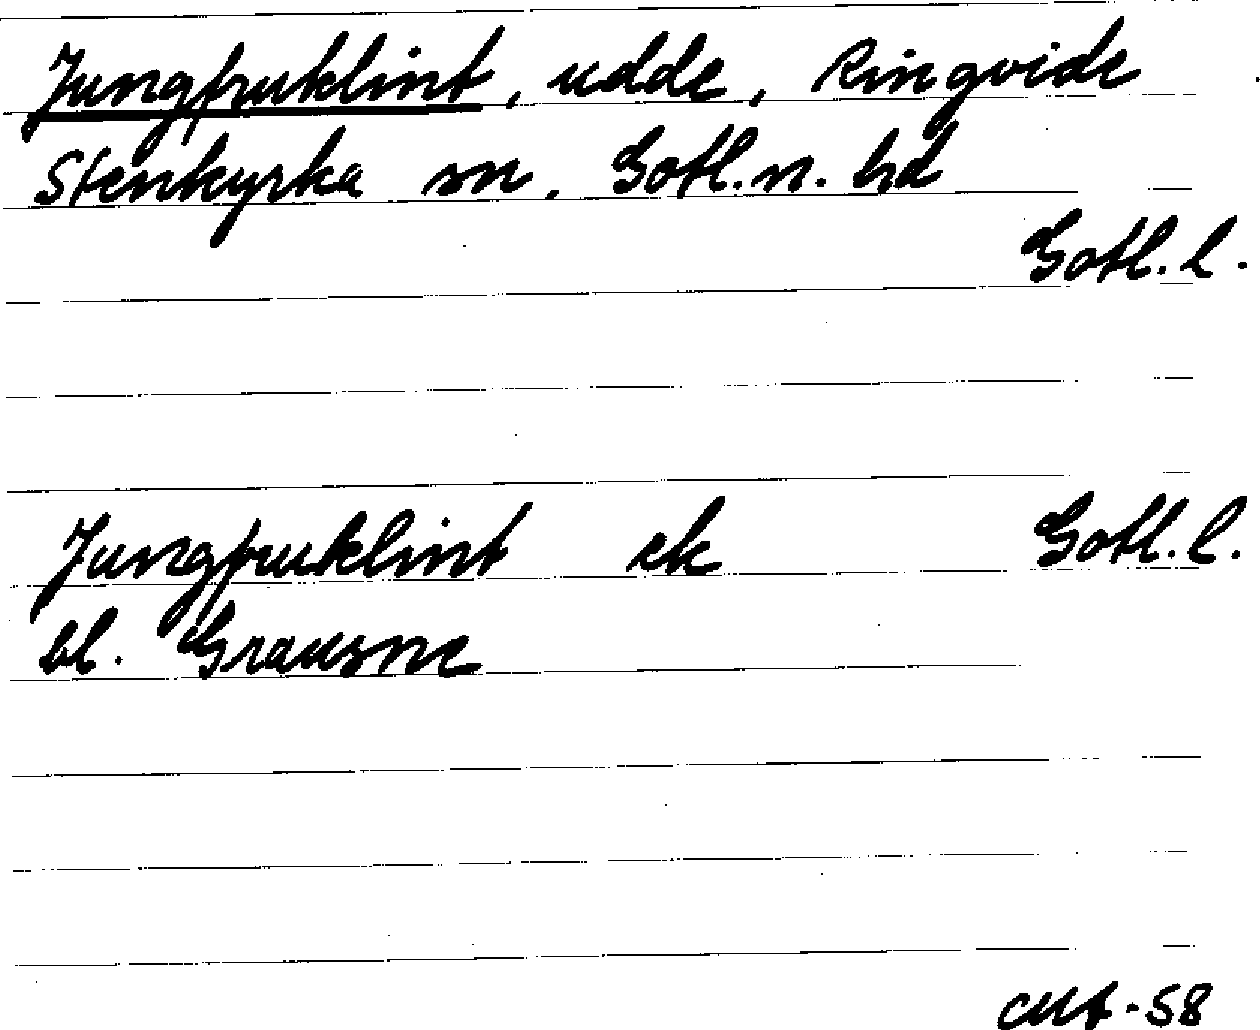 Jungfruklint, udde, Ringvide
Stenkyrka sn, Gotl.n. hd
Gotl.l.
Jungfruklint ek Gotl.l.
bl. Grausne
CMt-58